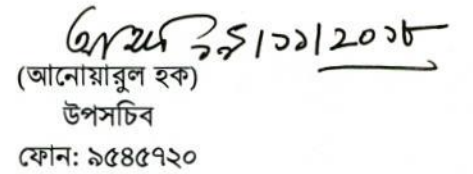 ১১|২০১৮
(আনোয়ারুল হক)
উপসচিব
ফোন: ৯৫৪৫৭২০